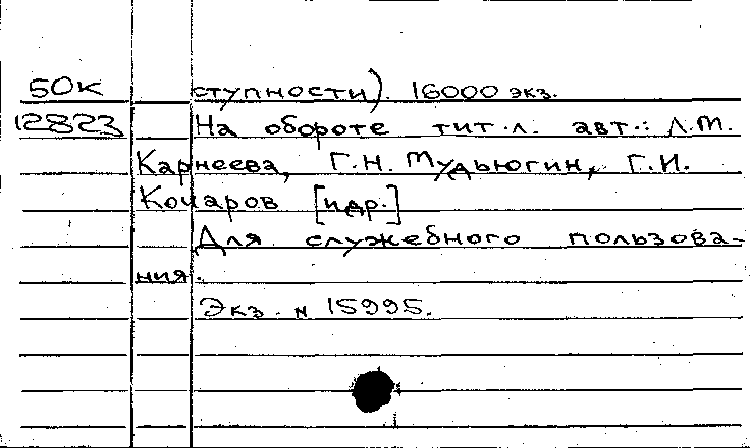 50К ступности). 16000 экз.
12823 На обороте тит.л. авт.: Л.М.
Карнеева, Г.Н. Мудьюгин, Г.И.
Кочаров [и др.]
Для служебного пользова-
ния.
Экз. № 15995.